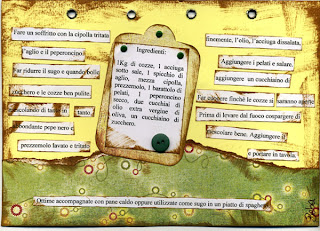 Fare un soffritto con la cipolla tritata
finemente, l'olio, l'acciuga dissalata,
l'aglio e il peperoncino.
Aggiungere i pelati e salare.
Far ridurre il sugo e quando bolle
aggiungere un cucchiaino di
zucchero e le cozze ben pulite.
Far cuocere finchè le cozze si saranno aperte
mescolando di tanto in tanto.
Prima di levare dal fuoco cospargere di
abbondante pepe nero e
mescolare bene. Aggiungere il
prezzemolo lavato e tritato
e portare in tavola.
Ingredienti:
1Kg di cozze, 1 acciuga
sotto sale, 1 spicchio di
aglio, mezza cipolla,
prezzemolo, 1 barattolo di
pelati, 1 peperoncino
secco, due cucchiai di
olio extra vergine di
oliva, un cucchiaino di
zucchero.
Ottime accompagnate con pane caldo oppure utilizzate come sugo in un piatto di spaghetti